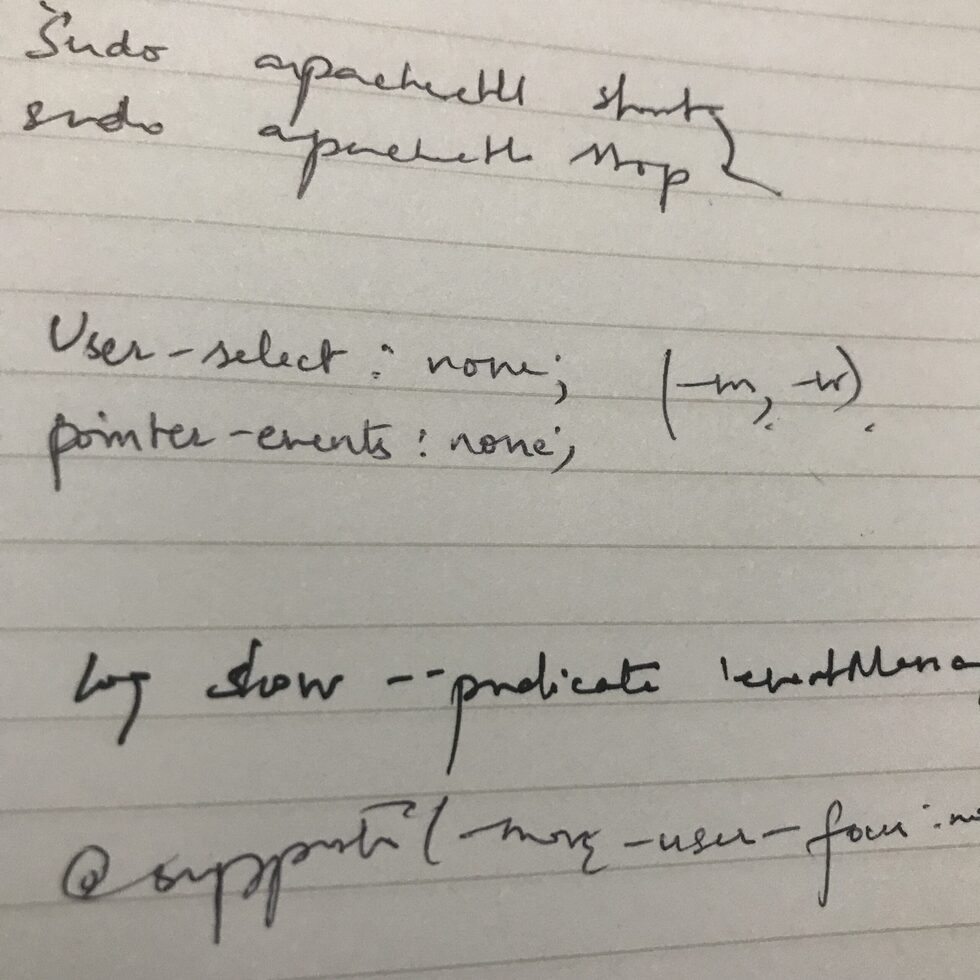 Sudo apachectl start
sudo apachectl stop
User-select : none; (-m, -w).
pointer-events : none;
log show --predicate 'eventMena
@supports (-moz-user-focus:no